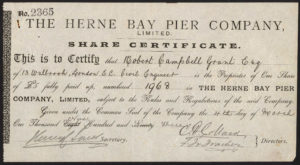 No. 2365
THE HERNE BAY PIER COMPANY,
LIMITED.
SHARE CERTIFICATE.
This is to Certify that Robert Campbell Grant Esq
of 13 Walbrook, London E.C. Civil Engineer is the Proprietor of One Share
of £5 fully paid up, numbered 1968 in THE HERNE BAY PIER
COMPANY, LIMITED, subject to the Rules and Regulations of the said Company.
Given under the Common Seal of the Company the 4th day of March
One Thousand Eight Hundred and Ninety three
Secretary.